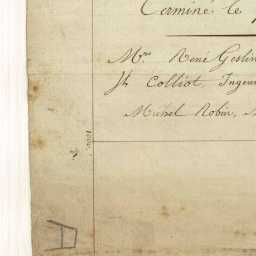 Terminé le
Mrs René Geslin
Jh Colliot, Ingen
Michel Robin,
A